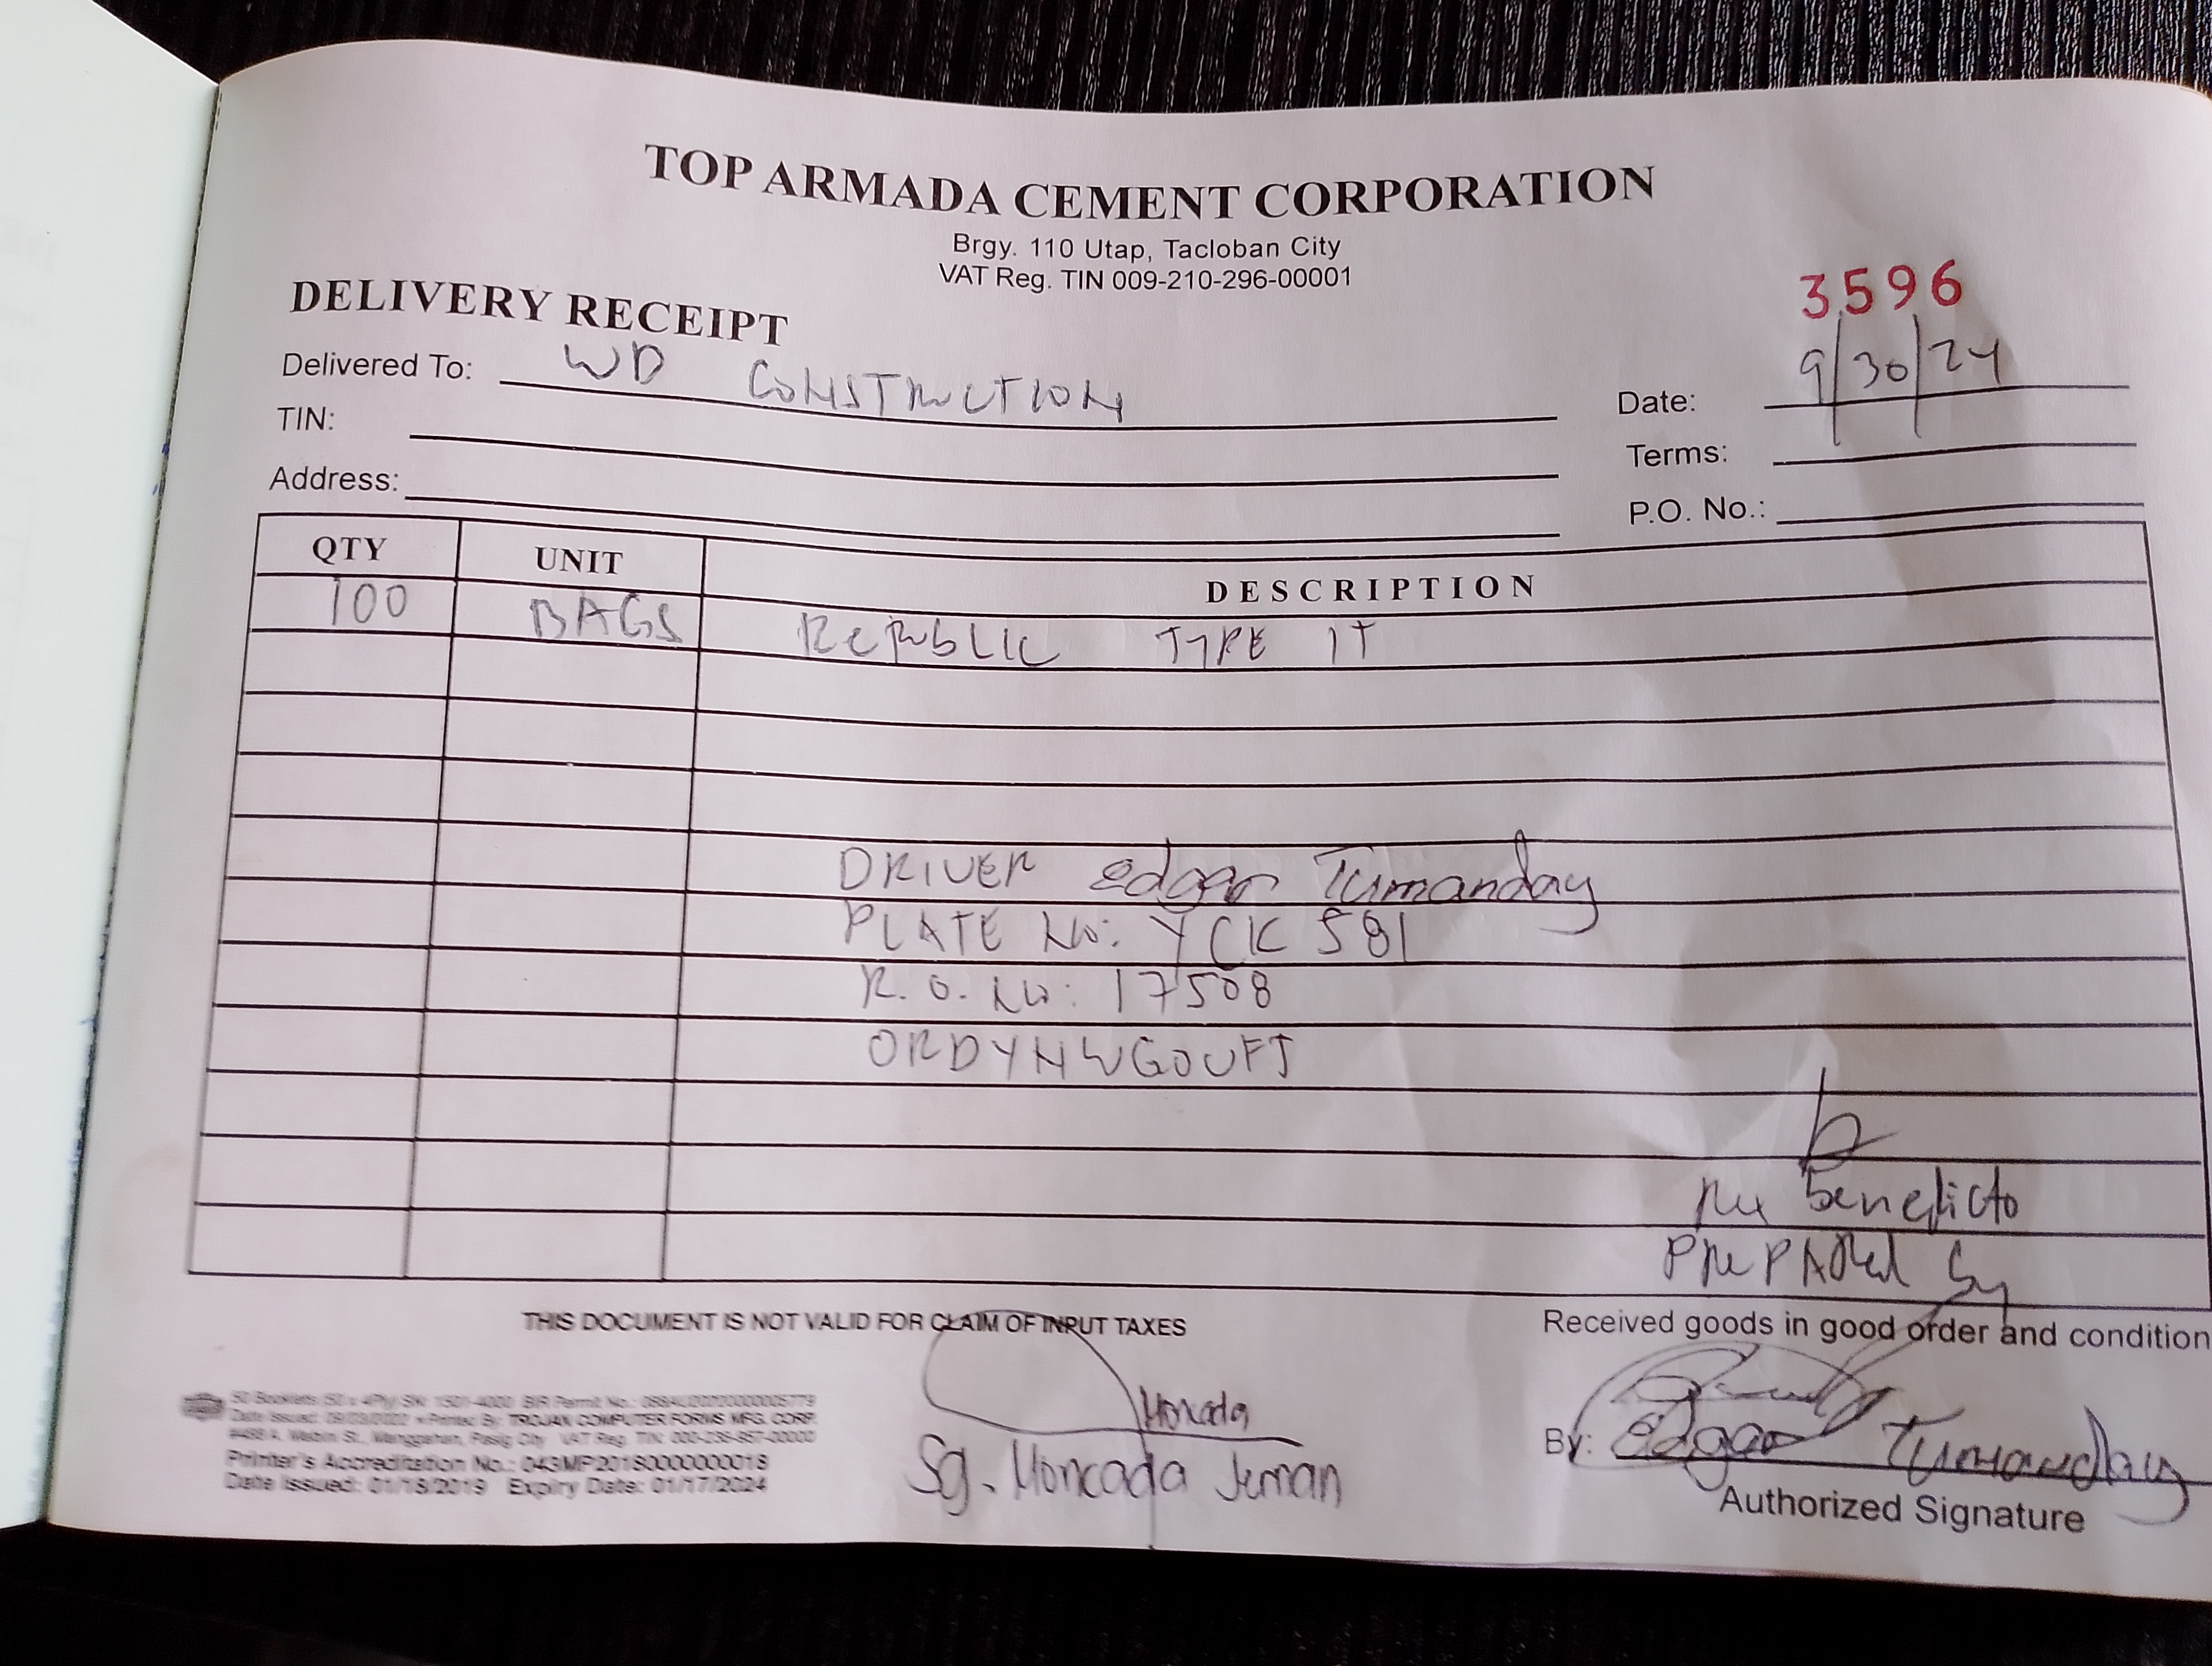 TOP ARMADA CEMENT CORPORATION
Brgy. 110 Utap, Tacloban City
VAT Reg. TIN 009-210-296-00001
DELIVERY RECEIPT
3596
Delivered To: WD CONSTRUCTION
Date: 9/30/24
TIN:
Terms:
Address:
P.O. No.:
QTY UNIT DESCRIPTION
100 BAGS REPUBLIC TYPE 1T
DRIVER Edgar Tumanday
PLATE No: YCK 581
R.O. No: 17508
ORDYNWGOUFJ
Benedicto
PREPARED by
THIS DOCUMENT IS NOT VALID FOR CLAIM OF INPUT TAXES
Received goods in good order and condition
Moncada
Sg. Moncada Jeman
By: Edgar Tumanday
Authorized Signature
50 Booklets (50 x 4Ply) SN: 1501-4000 BIR Permit No.:
Printed By: TROJAN COMPUTER FORMS MFG. CORP.
Pasig City VAT Reg. TIN:
Printer's Accreditation No.: 043MP20180000000018
Date Issued: 01/18/2019 Expiry Date: 01/17/2024